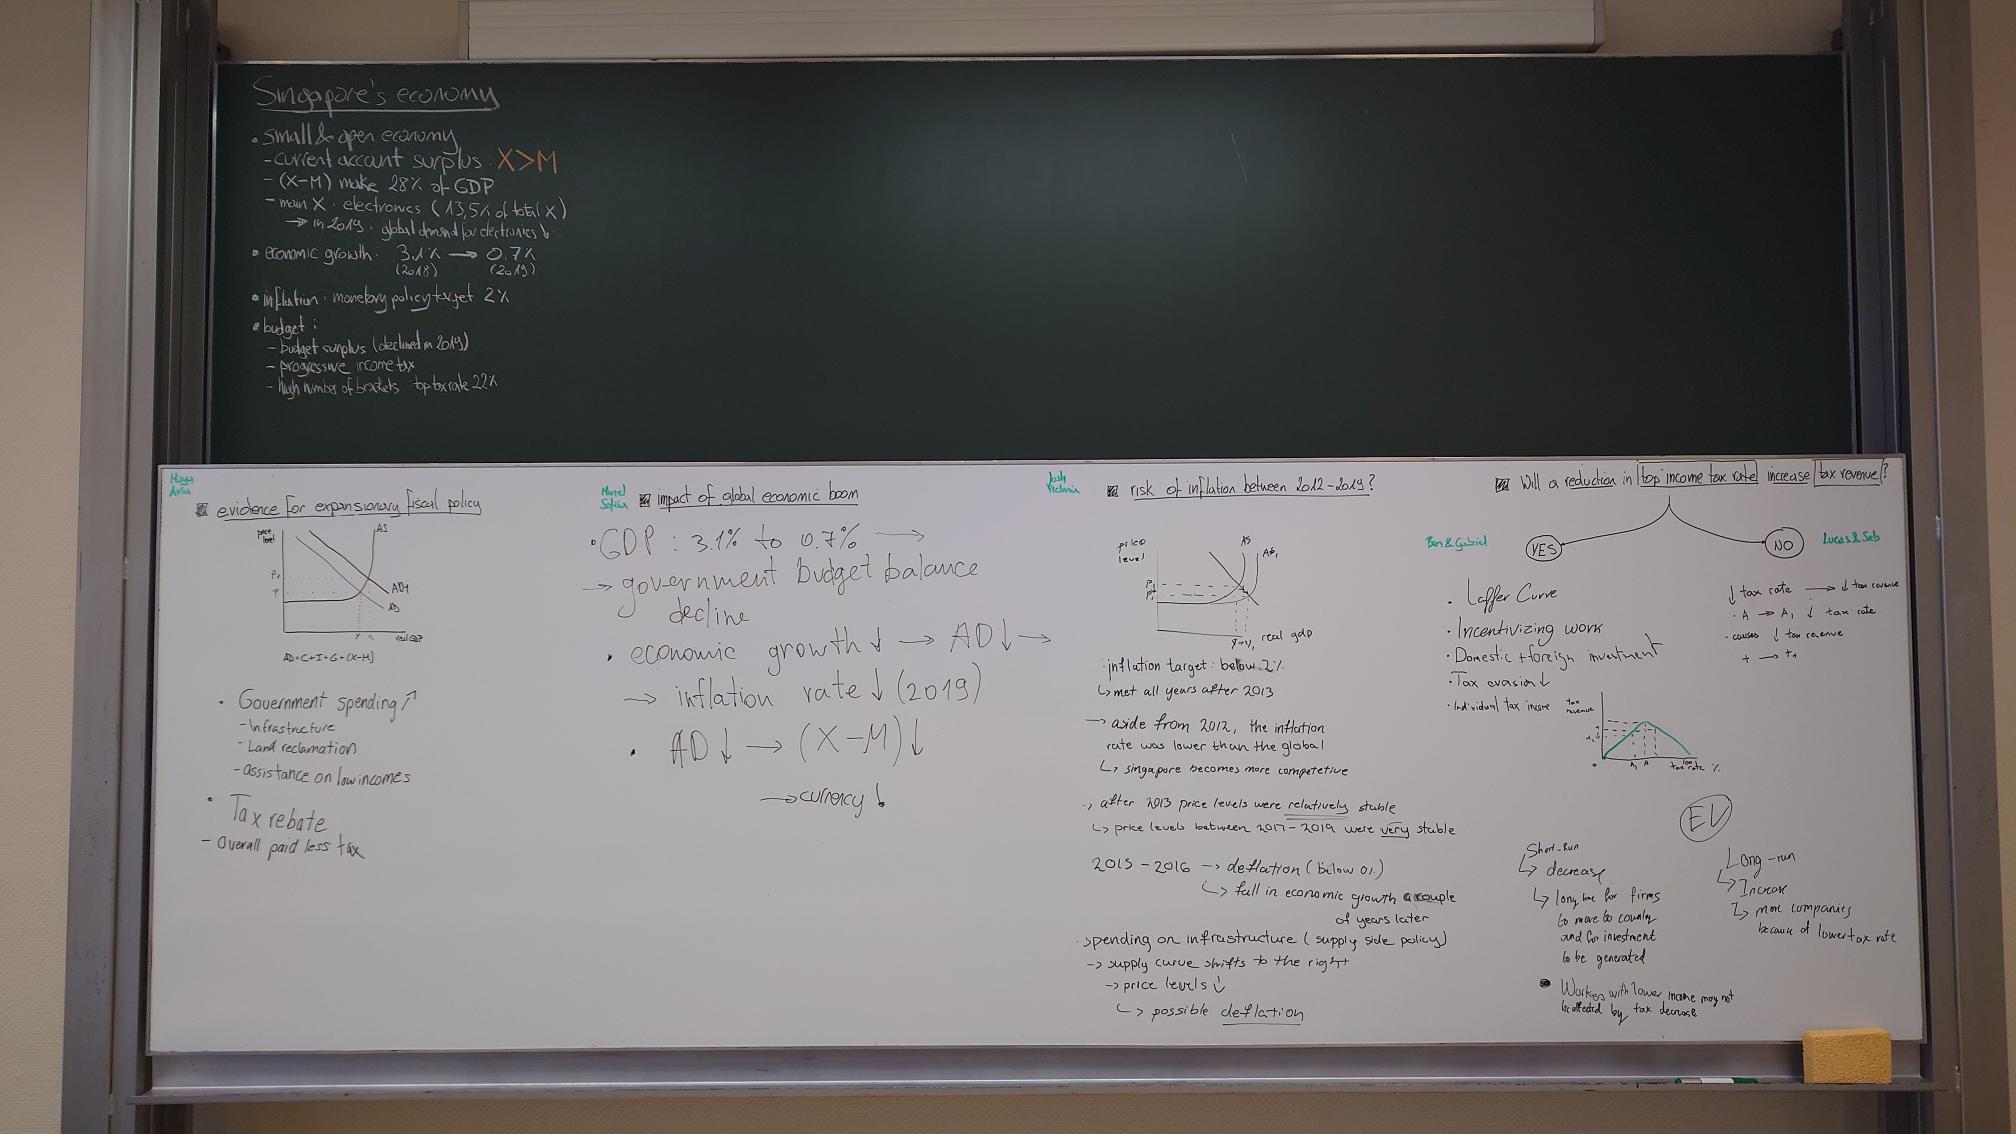 Singapore's economy
• small & open economy
- current account surplus : X>M
- (X-M) make 28% of GDP
- main X : electronics (13,5% of total X)
→ in 2019 : global demand for electronics ↓
• economic growth : 3.1% → 0.7%
(2018) (2019)
• inflation : monetary policy target 2%
• budget :
- budget surplus (declined in 2019)
- progressive income tax
- high number of brackets top tax rate 22%
evidence for expansionary fiscal policy
price level
AS
P1
P
AD1
AD
Y Y1
real GDP
AD=C+I+G+(X-M)
• Government spending ↗
- Infrastructure
- Land reclamation
- assistance on low incomes
• Tax rebate
- Overall paid less tax
Sofiia
impact of global economic boom
• GDP : 3.1% to 0.7% →
→ government budget balance
decline
• economic growth ↓ → AD ↓ →
→ inflation rate ↓ (2019)
• AD ↓ → (X-M) ↓
→ currency ↓
Josh
Victoria
risk of inflation between 2012-2019?
price
level
AS
AS1
P
P1
Y→Y1
real gdp
· inflation target : below 2%
↳ met all years after 2013
→ aside from 2012, the inflation
rate was lower than the global
↳ singapore becomes more competetive
→ after 2013 price levels were relatively stable
↳ price levels between 2017-2019 were very stable
2015-2016 → deflation (below 0%)
↳ fall in economic growth a couple
of years later
· spending on infrastructure (supply side policy)
→ supply curve shifts to the right
→ price levels ↓
↳ possible deflation
Will a reduction in top income tax rate increase tax revenue?
Ben & Gabriel
YES
• Laffer Curve
• Incentivizing work
• Domestic + foreign investment
• Tax evasion ↓
• Individual tax income
tax
revenue
0
A1 A
100
tax rate %
NO
Lucas & Seb
↓ tax rate → ↓ tax revenue
• A → A1 ↓ tax rate
• causes ↓ tax revenue
t → t1
EV
Short-Run
↳ decrease
↳ long time for firms
to move to country
and for investment
to be generated
• Workers with lower income may not
be affected by tax decrease
Long-run
↳ Increase
↳ more companies
because of lower tax rate